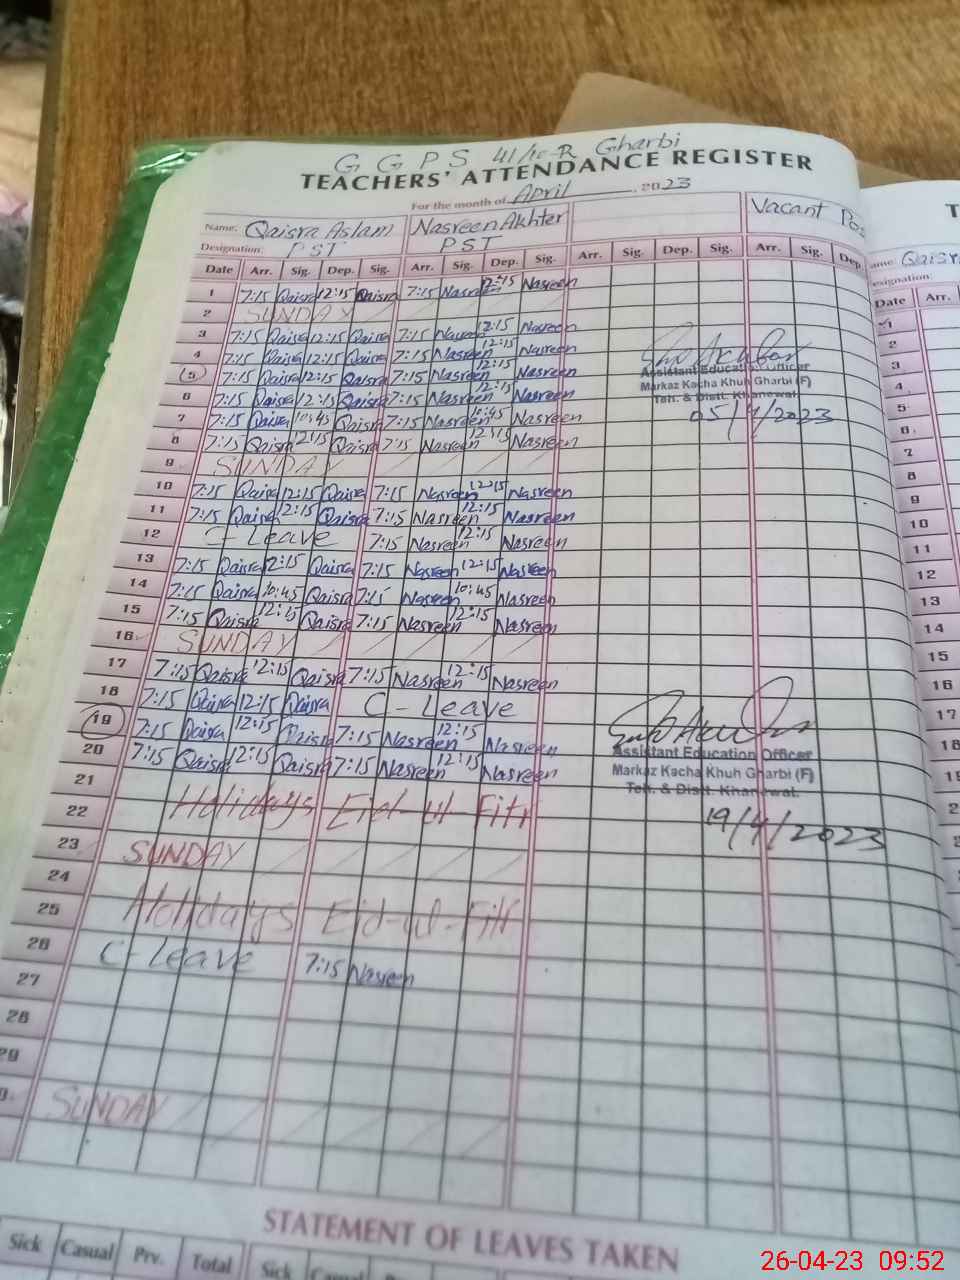 G G P S 41/10-R Gharbi
TEACHERS' ATTENDANCE REGISTER
For the month of April, 2023
Name. Qaisra Aslam Nasreen Akhter Vacant
Designation: PST PST
Date Arr. Sig. Dep. Sig. Arr. Sig. Dep. Sig. Arr. Sig. Dep. Sig. Arr. Sig. Dep.
1 7:15 Qaisra 12:15 Qaisra 7:15 Nasreen 12:15 Nasreen
2 SUNDAY
3 7:15 Qaisra 12:15 Qaisra 7:15 Nasreen 12:15 Nasreen
4 7:15 Qaisra 12:15 Qaisra 7:15 Nasreen 12:15 Nasreen
5 7:15 Qaisra 12:15 Qaisra 7:15 Nasreen 12:15 Nasreen
6 7:15 Qaisra 12:15 Qaisra 7:15 Nasreen 12:15 Nasreen
7 7:15 Qaisra 10:45 Qaisra 7:15 Nasreen 10:45 Nasreen
8 7:15 Qaisra 12:15 Qaisra 7:15 Nasreen 12:15 Nasreen
9 SUNDAY
10 7:15 Qaisra 12:15 Qaisra 7:15 Nasreen 12:15 Nasreen
11 7:15 Qaisra 12:15 Qaisra 7:15 Nasreen 12:15 Nasreen
12 C-Leave 7:15 Nasreen 12:15 Nasreen
13 7:15 Qaisra 12:15 Qaisra 7:15 Nasreen 12:15 Nasreen
14 7:15 Qaisra 10:45 Qaisra 7:15 Nasreen 10:45 Nasreen
15 7:15 Qaisra 12:15 Qaisra 7:15 Nasreen 12:15 Nasreen
16 SUNDAY
17 7:15 Qaisra 12:15 Qaisra 7:15 Nasreen 12:15 Nasreen
18 7:15 Qaisra 12:15 Qaisra C-Leave
19 7:15 Qaisra 12:15 Qaisra 7:15 Nasreen 12:15 Nasreen
20 7:15 Qaisra 12:15 Qaisra 7:15 Nasreen 12:15 Nasreen
21
22 Holidays Eid-ul-Fitr
23 SUNDAY
24
25 Holidays Eid-ul-Fitr
26 C-Leave 7:15 Nasreen
27
28
29
SUNDAY
Assistant Education Officer
Markaz Kacha Khuh Gharbi (F)
Teh. & Distt. Khanewal.
05/4/2023
Assistant Education Officer
Markaz Kacha Khuh Gharbi (F)
Teh. & Distt. Khanewal.
19/4/2023
STATEMENT OF LEAVES TAKEN
Sick Casual Prv. Total Sick Casual
Date Arr.
1
2
3
4
5
6
7
8
9
10
11
12
13
14
15
16
17
18
26-04-23 09:52